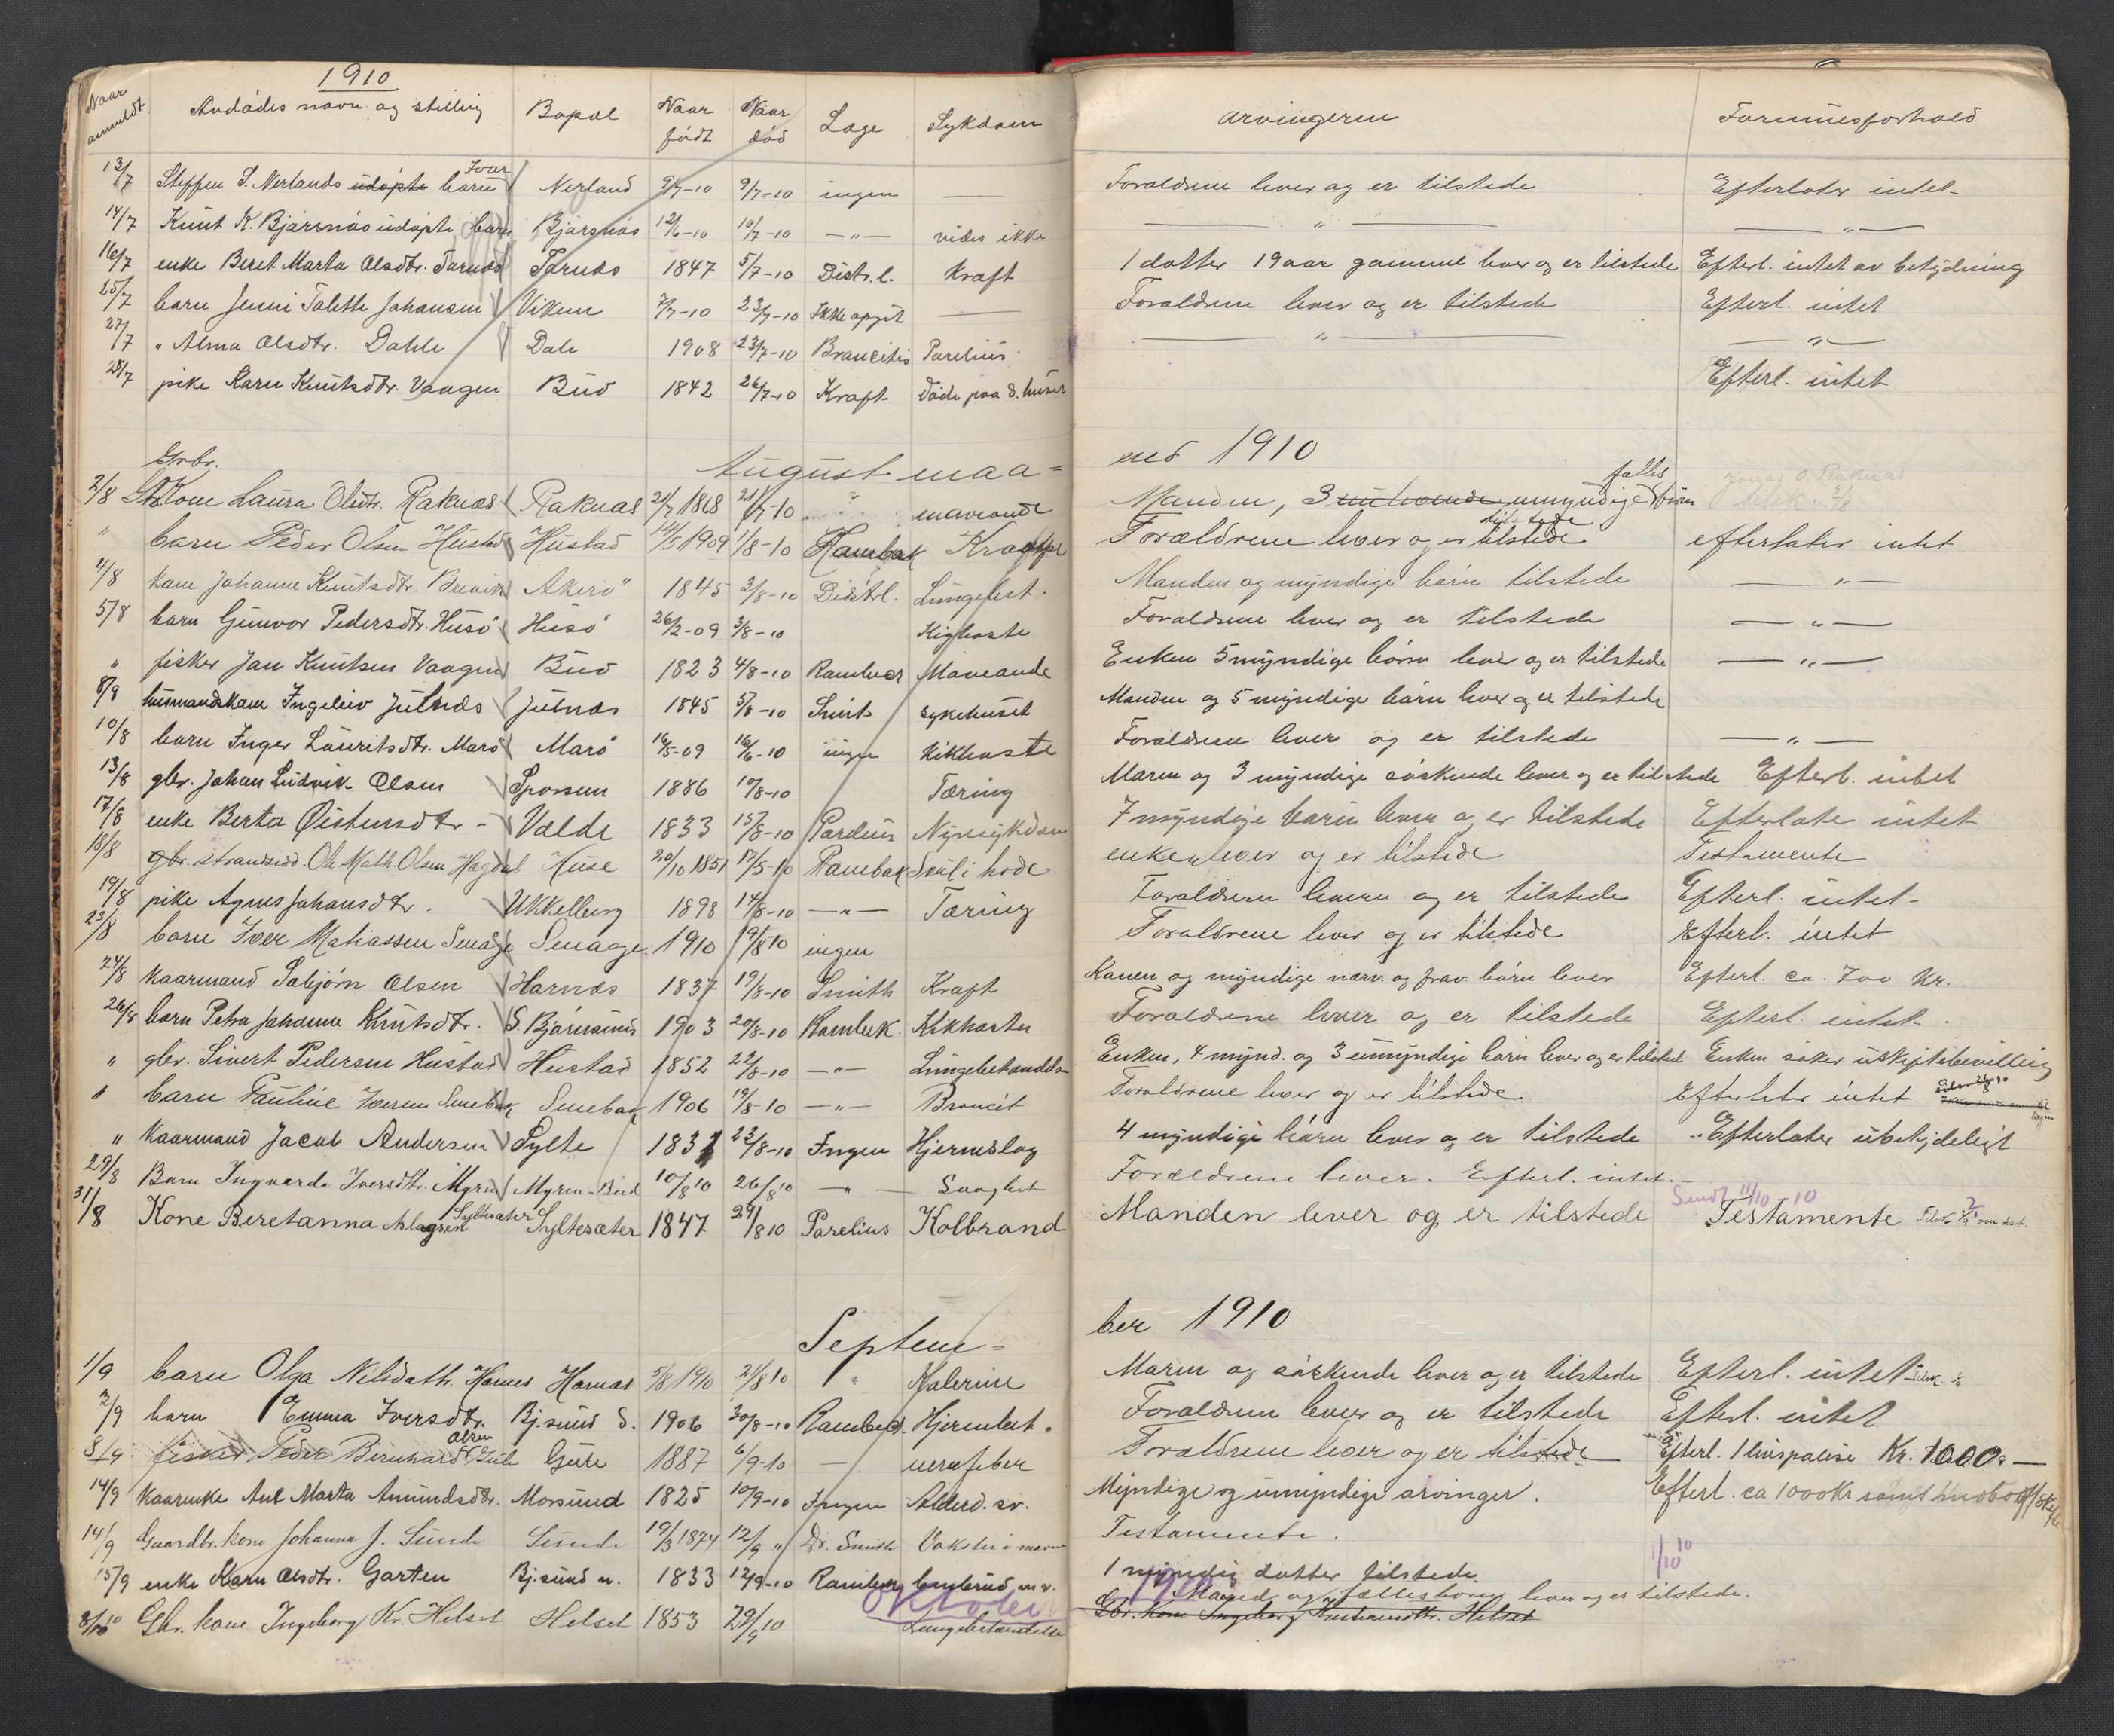 1910
Naar anmeldt Avdødes navn og stilling Bopæl Naar født Naar død Læge Sykdom arvingerne Formuesforhold
13/7 Steffen S. Nerlands udøpte barn Ivar Nerland 9/7-10 9/7-10 ingen — Forældrene lever og er tilstede Efterlater intet
14/7 Knut K. Bjørsnøs udøpte barn Bjørsnøs 12/6-10 10/7-10 —"— vides ikke —"— —"—
16/7 enke Beret Marta Olsdtr. Tornæs Tornæs 1847 5/7-10 Distr.l. Kraft 1 datter 19 aar gammel lever og er tilstede Efterl. intet av betydning
25/7 barn Jenni Talette Johansen Viken 7/7-10 23/7-10 Ikke opgit — Forældrene lever og er tilstede Efterl. intet
27/7 " Alma Olsdtr. Dahle Dale 1908 23/7-10 Broncitis Parelius —"— —"—
28/7 pike Karn Knutsdtr. Vaagen Bud 1842 26/7-10 Kraft døde paa s.huset Efterl. intet
August maa= ned 1910
Grbr.
2/8 Kone Laura Olsdtr. Raknæs Raknæs 21/7 1868 21/7-10 " mavesaar Manden, 3 umyndige fælles børn
" barn Peder Olsen Hustad Hustad 14/5 1909 1/8-10 Rambæk Forældrene lever og er tilstede efterlater intet
4/8 kone Johanne Knutsdtr. Brevik Akerø 1845 3/8-10 Distrl. Lungebet. Manden og myndige børn tilstede —"—
5/8 barn Gunvor Pedersdtr. Husø Husø 26/2-09 3/8-10 Kighoste Forældrene lever og er tilstede —"—
" fisker Jon Knutsen Vaagen Bud 1823 4/8-10 Rambæk Maveonde Enken 5 myndige børn lever og er tilstede —"—
8/8 husmandskone Ingeleiv Julnæs Julnæs 1845 5/8-10 Smit sykehuset Manden og 5 myndige børn lever og er tilstede
10/8 barn Inger Lauritsdtr. Marø Marø 16/5-09 16/6-10 ingen Kikhoste Forældrene lever og er tilstede —"—
13/8 gbr. Johan Ludvik Olsen Sporsem 1886 10/8-10 Tæring Moren og 3 myndige søskende lever og er tilstede Efterl. intet
17/8 enke Berta Øistensdtr - Valde 1833 15/8-10 Parelius Nyresykdom 7 myndige barn lever og er tilstede Efterlate intet
18/8 gbr. strandsidd. Ole Math. Olsen Hagdal Huse 20/10 1851 17/5-10 Rambæk Svul i hode enken lever og er tilstede Testamente
19/8 pike Agnes Johansdtr. Ukkelberg 1898 14/8-10 —"— Tæring Forældrene lever og er tilstede Efterl. intet-
23/8 barn Iver Matiassen Smaage Smaage 1910 19/8 10 ingen Forældrene lever og er tilstede Efterl. intet
24/8 kaarmand Sebjørn Olsen Harnæs 1837 19/8-10 Smith Kraft Konen og myndige nærv. og frav. børn lever Efterl. ca. 700 kr.
26/8 barn Petra Johanne Knutsdtr. S. Bjørnsund 1903 20/8-10 Rambæk Kikhoste Forældrene lever og er tilstede Efterl. intet.
" gbr. Sivert Pedersen Hustad Hustad 1852 22/8-10 —"— Lungebetændelse Enken, 4 mynd. og 3 umyndige børn lever og er tilsted Enken søker uskiftebevilling
" barn Pauline Iversen Smebak Smebak 1906 19/8-10 —"— Broncit Forældrene lever og er tilstede Efterlater intet
" kaarmand Jacob Andersen Sylte 1831 23/8-10 Ingen Hjerneslag 4 myndige børn lever og er tilstede Efterlater ubetydeligt
29/8 Barn Ingvarda Iversdtr. Myren Myren - Bud 10/8 10 26/8 10 —"— Svaghet Forældrene lever. Efterl. intet.
31/8 Kone Beretanna Aslagsen Syltesæter Syltesæter 1847 29/8 10 Parelius Kolbrand Manden lever og er tilstede Sendt 11/10-10 Testamente
Septem= ber 1910
1/9 barn Olga Nilsdatr. Harnes Harnæs 5/8 1910 21/8 10 " Kolerine Moren og søskende lever og er tilstede Efterl. intet
2/9 barn Emma Iversdtr. Bj.sund S. 1906 30/8-10 Rambæk Hjernbet. Forældrene lever og er tilstede Efterl. intet
8/9 fisker Peder Bernhard Olsen Gule Gule 1887 6/9-10 — nervefeber Forældrene lever og er tilstede Efterl. 1 livspolise Kr. 1000.—
14/9 kaarenke Ane Marta Amundsdtr. Morsund 1825 10/9-10 Ingen Alderd. sv. Myndige og umyndige arvinger. Efterl. ca 1000 kr samt indbo
14/9 Gaardbr. kone Johanna J. Sunde Sunde 19/3 1874 12/9 " Dr. Smith Vekster i maven Testamente.
1/10 10
15/9 enke Karn Olsdtr. Garten Bj.sund n. 1833 12/9-10 Rambæk 1 myndig datter tilstede
Oktober 1910
3/10 10 Gbr. kone Ingeborg Kr. Helset Helset 1853 29/9 10 Lungebetændelse Mand og fællesbarn lever og er tilstede.
Gbr. kone Ingeborg Kristiansdtr. Helset